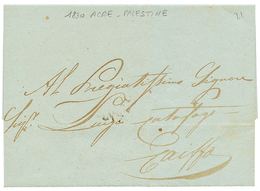 1830 ACRE - PALESTINE
Al Pregiatissimo Signore
Sigr. Luigi Catafago
Caiffa